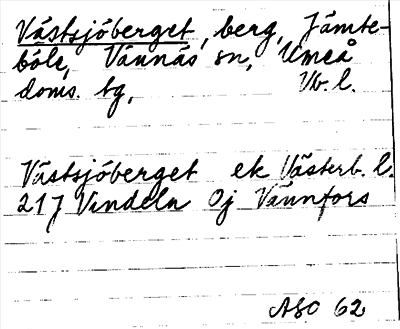 Västsjöberget, berg, Jämte-
böle, Vännäs sn, Umeå
doms. tg, Vb. l.
Västsjöberget ek Västerb. l.
217 Vindeln Öj Vännfors
ASO 62